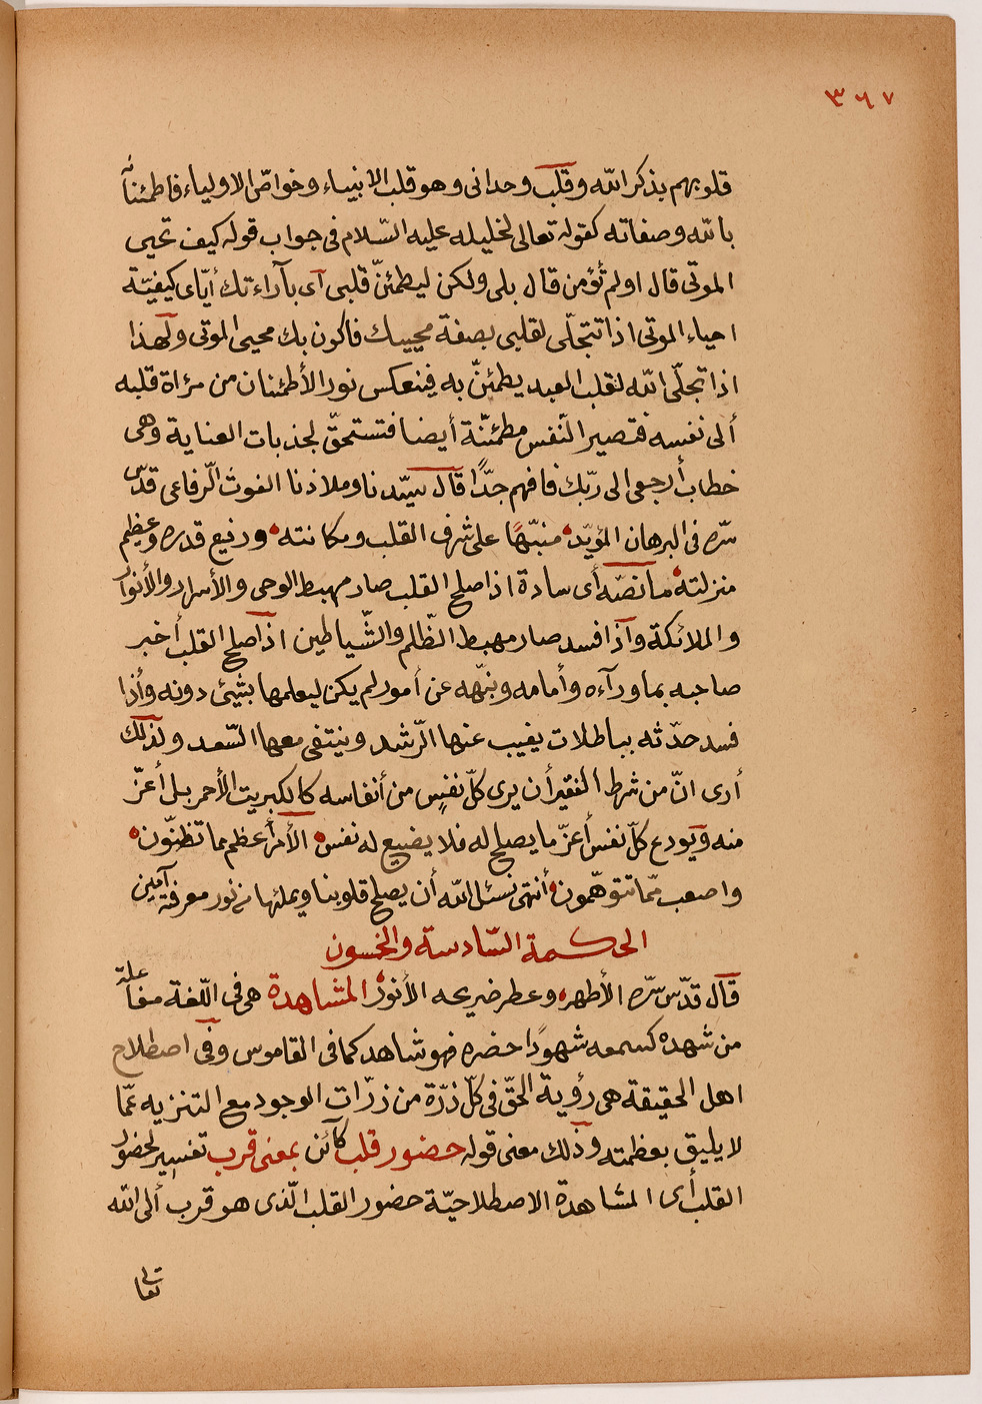 ٣٦٧
قلوبهم بذكر الله وقلب وحدانى وهو قلب الانبياء وخواصّ الاولياء فاطمئنانه
بالله وصفاته كقوله تعالى لخليله عليه السّلام فى جواب قوله كيف تحيى
الموتى قال اولم تؤمن قال بلى ولكن ليطمئنّ قلبى آى بآراءتك أيّاى كيفيّة
احياء الموتى اذا تتجلّى لقلبى بصفة محييك فاكون بك محيى الموتى ولهذا
اذا تجلّى الله لقلب العبد يطمئنّ به فينعكس نور الأطمئنان من مرٔاة قلبه
ألى نفسه فتصير النّفس مطمئنّة أيضا فتستحقّ لجذبات العناية وهى
خطاب أرجعى الى ربّك فافهم جدًّا قال سيّدنا وملاذنا الغوث الرّفاعى قدّس
سّره فى البرهان المؤيّد منبّهًا على شرف القلب ومكانته ورفيع قدره وعظيم
منزلته مانصّه أى سادة اذا صلح القلب صار مهبط الوحى والأسرار والأنوار
والملائكة وآذا فسد صار مهبط الظّالم والشّياطين اذا صلح القلب أخبر
صاحبه بما ورآءه وأمامه ونبّهه عن أمور لم يكن ليعلمها بشيئ دونه وأذا
فسد حدّثه بباطلات يغيب عنها الرّشد وينتفى معها السّعد ولذلك
أرى انّ من شرط الفقير أن يرى كلّ نفسٍ من أنفاسه كالكبريت الأحمر بل أعزّ
منه ويودع كلّ نفس أعزّ ما يصلح له فلا يضيع له نفس الأمر أعظم مما تظنّون
واصعب ممّا تتوهّمون أنتهى نسئل الله أن يصلح قلوبنا ويملئها من نور معرفته آمين
الحكمة السّادسة والخمسون
قال قدّس سّره الأطهر وعطر ضريحه الأنور المشاهدة هى فى اللّغة مفاعلة
من شهده كسمعه شهودًا حضره فهو شاهد كما فى القاموس وفى اصطلاح
اهل الحقيقة هى رؤية الحقّ فى كلّ ذرّة من ذرّات الوجود مع التنزيه عمّا
لا يليق بعظمته وذلك معنى قوله حضور قلب كآئن بمعنى قرب تفسير لحضور
القلب أى المشاهدة الاصطلاحيّة حضور القلب الّذى هو قرب ألى الله
تعالى